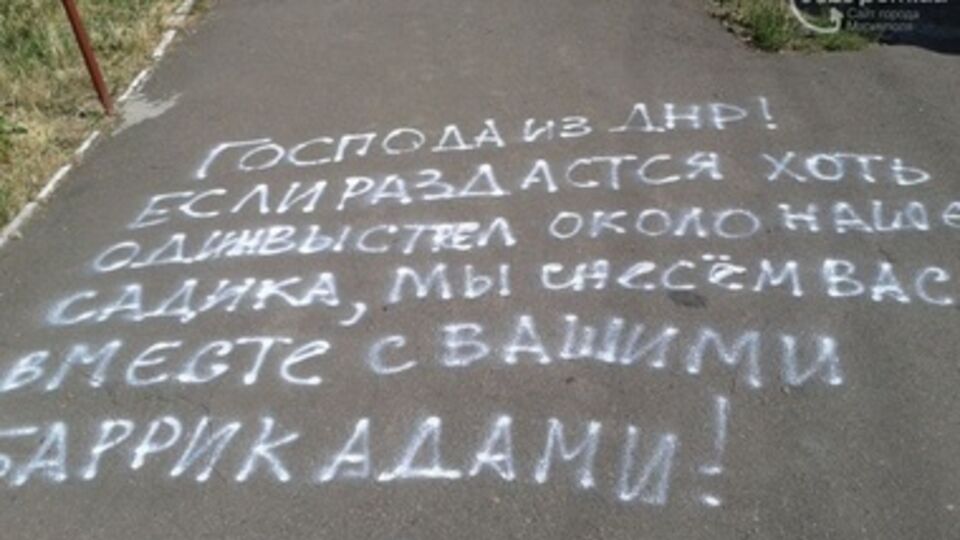 Сайт города
Мариуполя
ГОСПОДА ИЗ ДНР!
ЕСЛИ РАЗДАСТСЯ ХОТЬ
ОДИН ВЫСТРЕЛ ОКОЛО НАШЕ
САДИКА, МЫ СНЕСЁМ ВАС
ВМЕСТЕ С ВАШИМИ
БАРРИКАДАМИ!